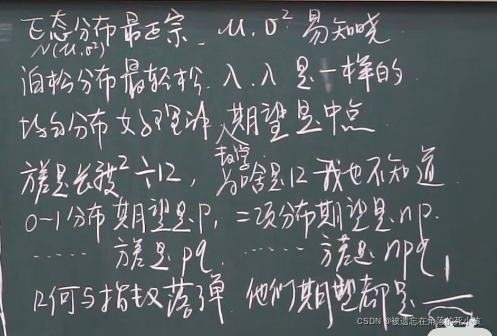 正态分布最正宗 μ.σ² 易知晓
N(μ,σ²)
泊松分布最轻松. λ.λ 是一样的
均匀分布 期望是中点
方差是长度²÷12, 为啥是12 我也不知道
0-1分布期望是p, 二项分布期望是np.
…… 方差是pq, …… 方差是npq
几何与指数落弹 他们期望都是 1/
CSDN @被遗忘在角落的死小孩